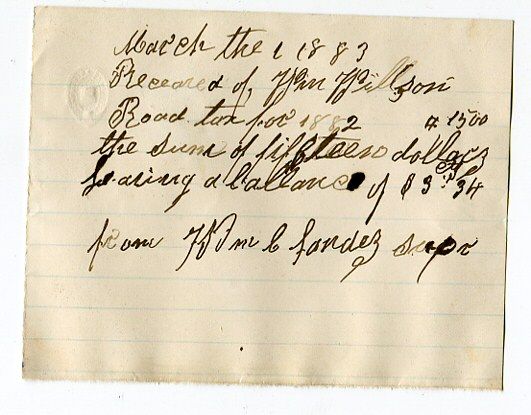 March the 1 1883
Receaved of Wm Willson
Road tax for 1882 $ 1500
the sum of fifteen dollars
leaving a ballance of $ 3.34
from Wm C supr